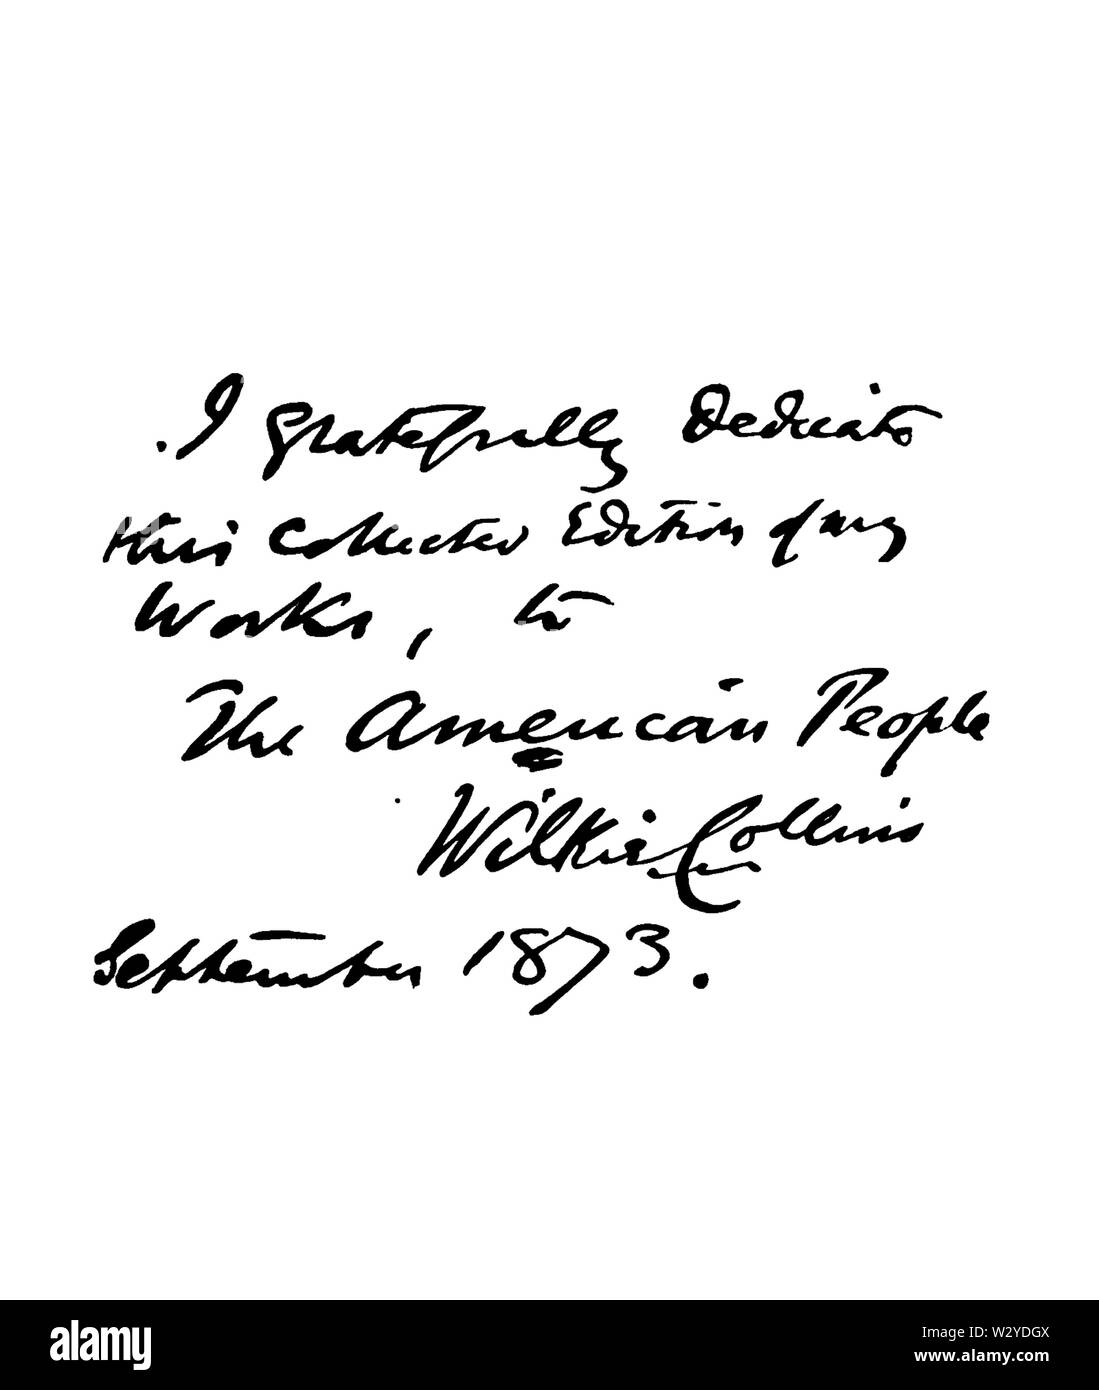 I gratefully Dedicate
this Collected Edition of my
Works, to
The American People
Wilkie Collins
September 1873.
alamy
Image ID: W2YDGX
www.alamy.com